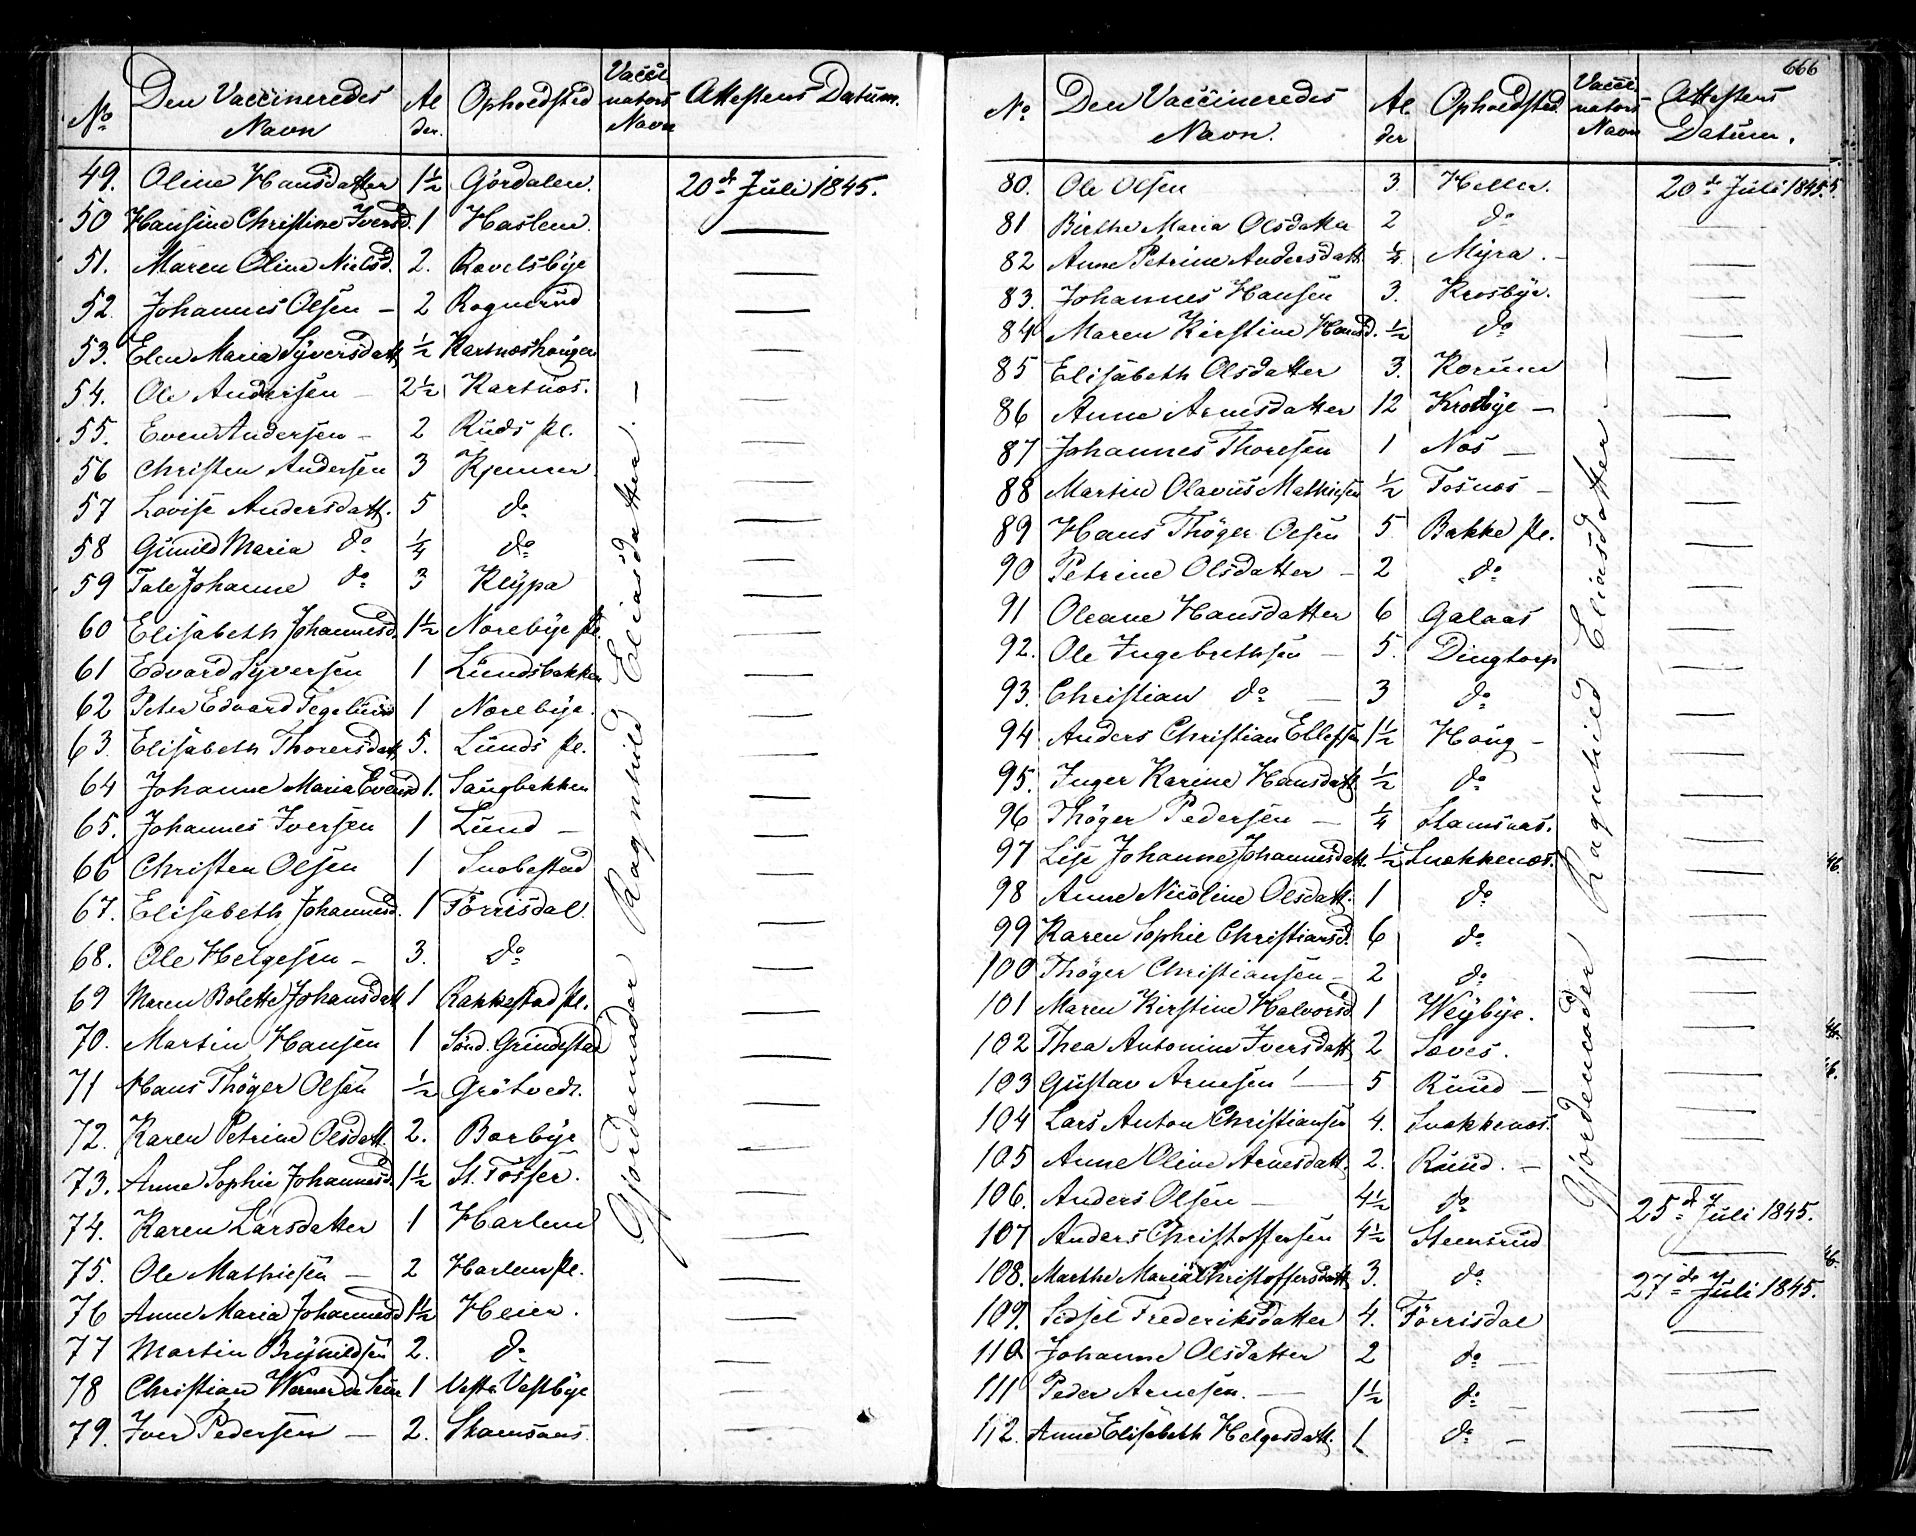 No Den Vaccineredes Navn Alder. Opholdsted Vaccinators Navn Attestens Datum.
49. Oline Hansdatter 1½ Gördalen. 20de Juli 1845.
50 Hansine Christine Iversd. 1 Haslem. —
51. Maren Oline Nielsd. 2. Ravelsbye —
52. Johannes Olsen — 2 Rognerud —
53. Elen Maria Syversdatt ½ Kartnæshougen —
54. Ole Andersen — 2½ Kartnæs. —
55. Even Andersen — 2 Ruds Pl. —
56 Christen Andersen 3 Kjenner —
57 Lovise Andersdatt. 5 do —
58 Gunild Maria do ¼ do —
59 Tale Johanne do 3 Klypa —
60 Elisabeth Johannesd. 1½ Norebye Pl. —
61 Edvard Syversen 1 Lundsbakken —
62 Peter Edvard 1 Norebye. —
63. Elisabeth Thorersdatt 5. Lunds Pl. —
64 Johanne Maria Evensd 1. Saugbakken —
65. Johannes Iversen 1 Lund — —
66 Christen Olsen 1 Snobestad —
67. Elisabeth Johannesd. 1 Torrisdal —
68. Ole Helgesen — 3. do —
69 Maren Bolette Johansdatt 1 Rakkestad Pl. —
70. Martin Hansen 1 Sönd. Grindestad —
71 Hans Thöger Olsen ½ Grötvedt. —
72. Karen Petrine Olsdatt. 2. Borbye —
73. Anne Sophie Johannesd. 1½ St. Fosser. —
74. Karen Larsdatter 1 Harlem —
75. Ole Mathiesen — 2 Harlem Pl. —
76 Anne Maria Johannesd 1½ Heier. —
77 Martin Brynildsen 2. do —
78 Christian Werner 1 Vestre Vestbye —
79. Iver Pedersen — 2. Stamsaas. —
Gjordemoder Ragnhild Eliasdatter. —
666
No Den Vaccineredes Navn. Alder Opholdsted. Vaccinators Navn Attestens Datum.
80. Ole Olsen 3. Heller. 20de Juli 1845.
81 Birthe Maria Olsdatter 2 do —
82 Anne Petrine Andersdatt. ¼ Myra. — —
83. Johannes Hansen 3. Krosbye. —
84 Maren Kirstine Hansd. ½ do —
85 Elisabeth Olsdatter 3. Korum —
86 Anne Arnesdatter 12 Krosbye — —
87 Johannes Thoresen 1 Næs — —
88 Martin Olavus Mathiesen ½ Fosnæs — —
89 Hans Thöger Olsen 5 Bakke Pl. —
90 Petrine Olsdatter — 2 do —
91 Oleane Hansdatter 6 Galaas —
92. Ole Ingebrethsen — 5. Dingtorp —
93. Christian do — 3 do —
94 Anders Christian Ellefsen 1½ Houg — —
95. Inger Karine Hansdatt. ½ do —
96 Thöger Pedersen — ¼ Stamsaas. —
97 Lise Johanne Johannesdatt. ½ Snekkenæs. —
98 Anne Nicoline Olsdatt. 1 do —
99 Karen Sophie Christiansd. 6 do —
100 Thöger Christiansen — 2 do —
101 Maren Kirstine Halvorsd. 1 Weybye. —
102 Thea Antonine Iversdatt 2 Sæves. —
103 Gustav Arnesen — 5 Ruud — —
104 Lars Anton Christiansen 4. Snekkenæs. —
105 Anne Oline Arnesdatt. 2. Ruud. — —
106. Anders Olsen — 4½ do 25de Juli 1845.
107 Anders Christoffersen 4½ Steensrud —
108. Marthe Maria Christoffersdatt 3. do 27de Juli 1845.
109. Sidsel Frederiksdatter 4. Törrisdal —
110 Johanne Olsdatter 2 do — —
111 Peder Arnesen. — 1½ do — —
112. Anne Elisabeth Helgesdatt. 1 do — —
Gjordemoder Ragnhild Eliasdatter —